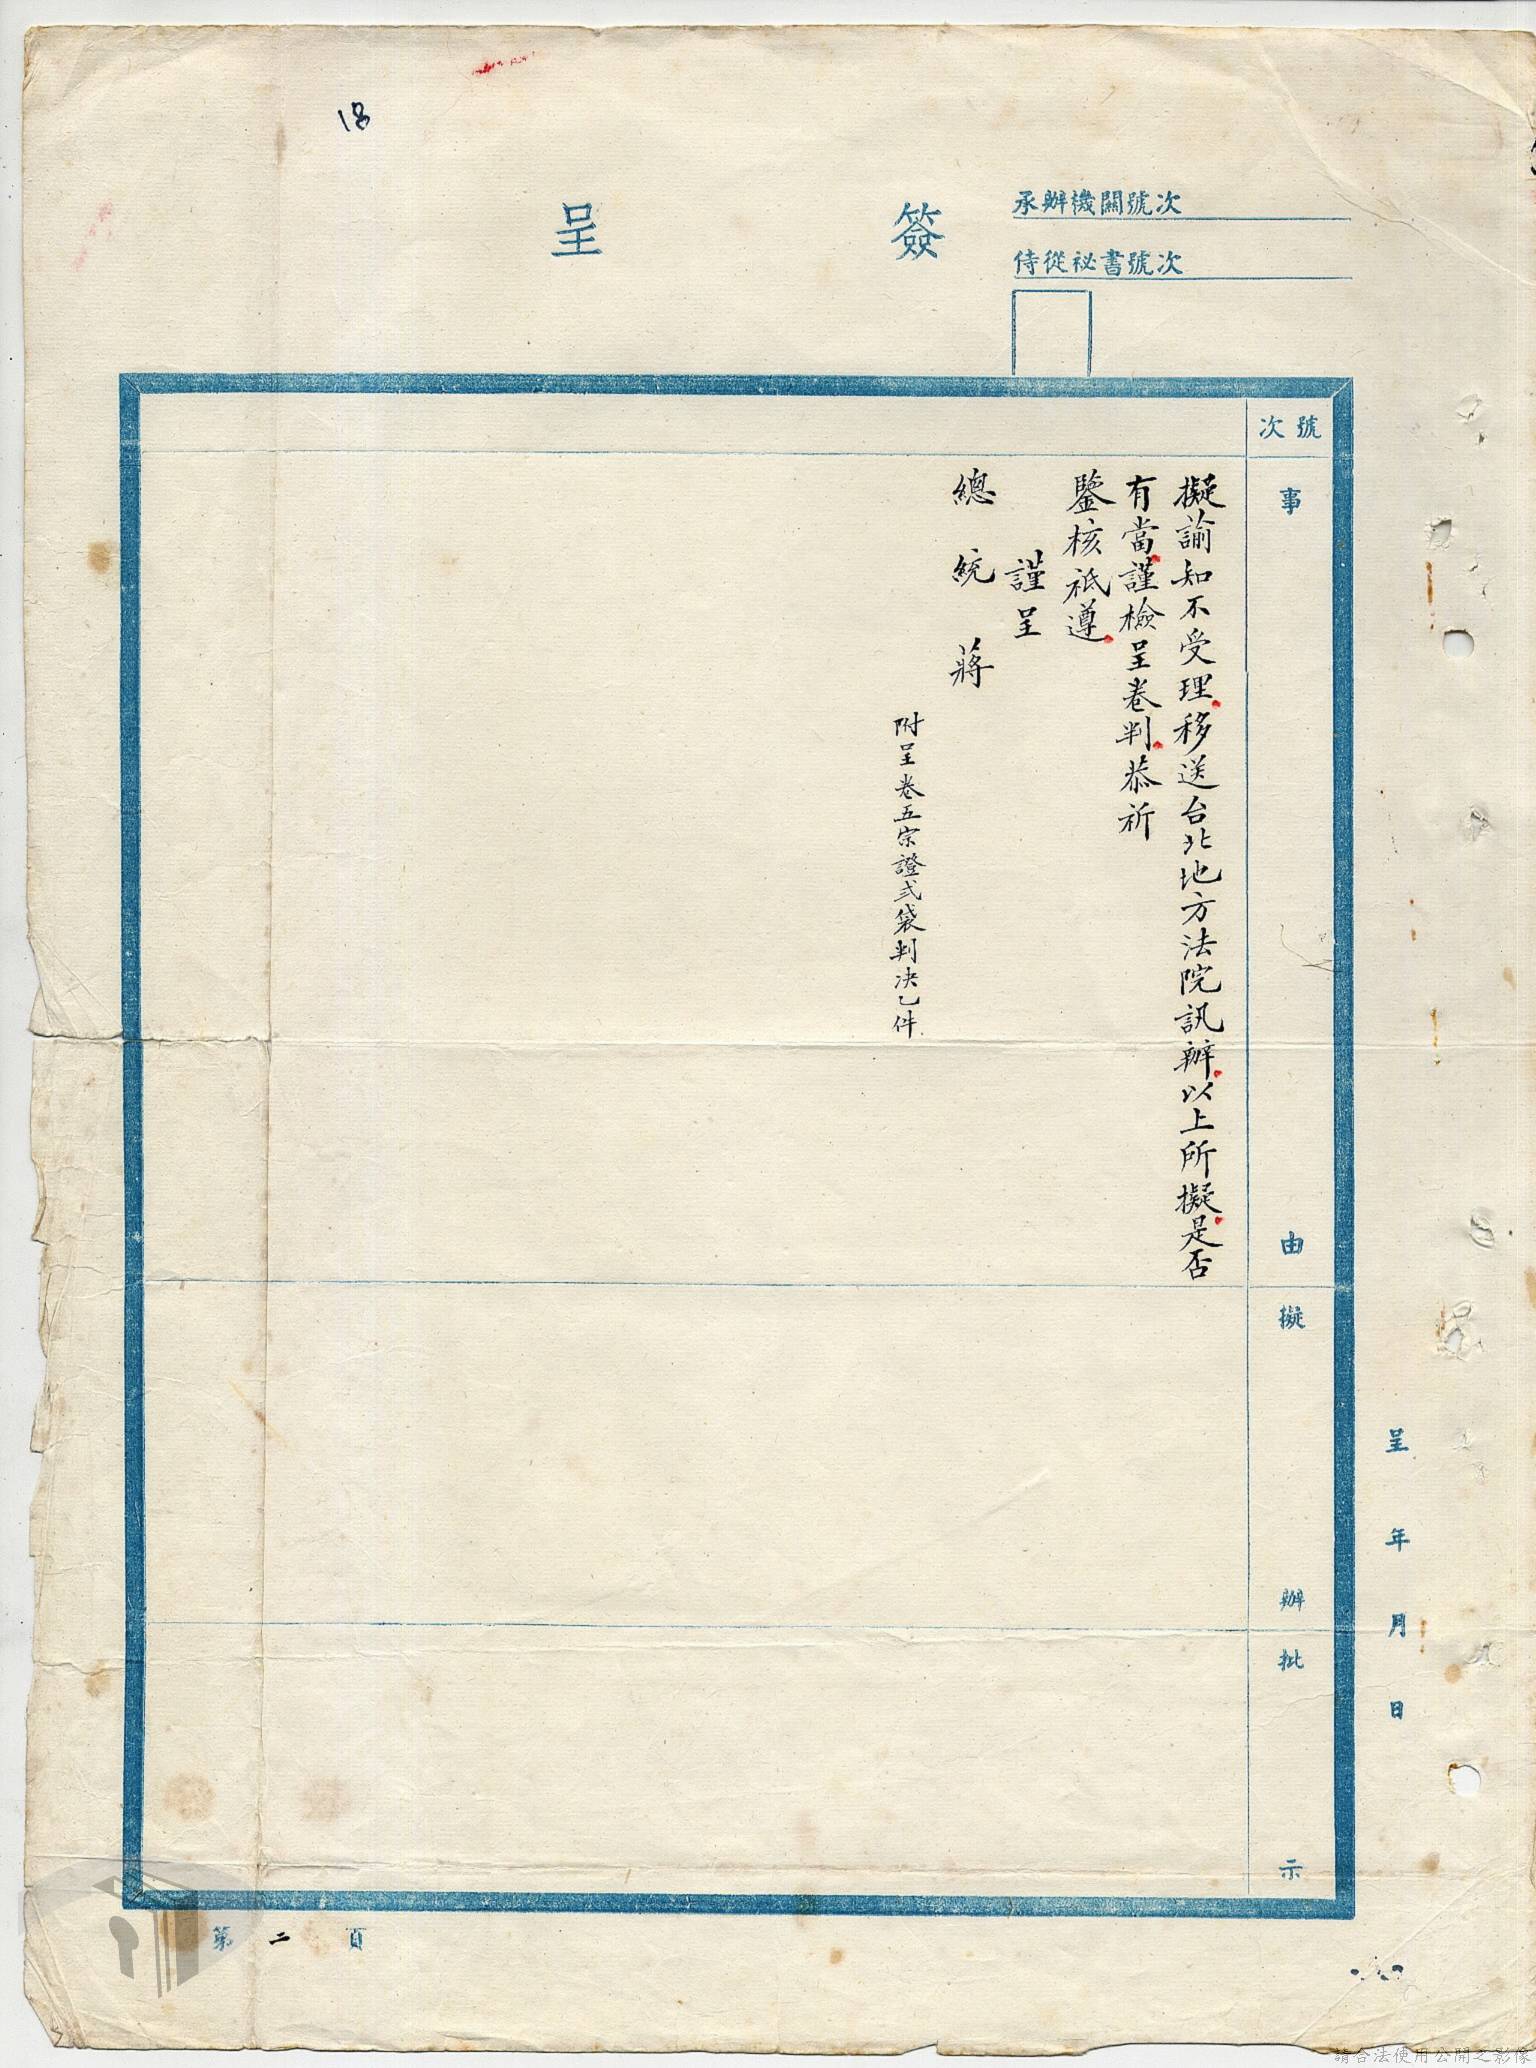 18
簽呈
承辦機關號次
侍從祕書號次
號次
事由
擬辦
批示
呈 年 月 日
擬諭知不受理移送台北地方法院訊辦以上所擬是否
有當謹檢呈卷判恭祈
鑒核祗遵
謹呈
總統 蔣
附呈卷五宗證弍袋判決乙件
第二頁
請合法使用公開之影像